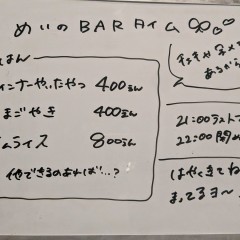 めいのBARタイム
はん
ンナーやいたやつ 400えん
まごやき 400えん
ムライス 800えん
他できるのあれば…?
21:00ラスト
22:00閉め
はやくきてね
まってるヨ〜